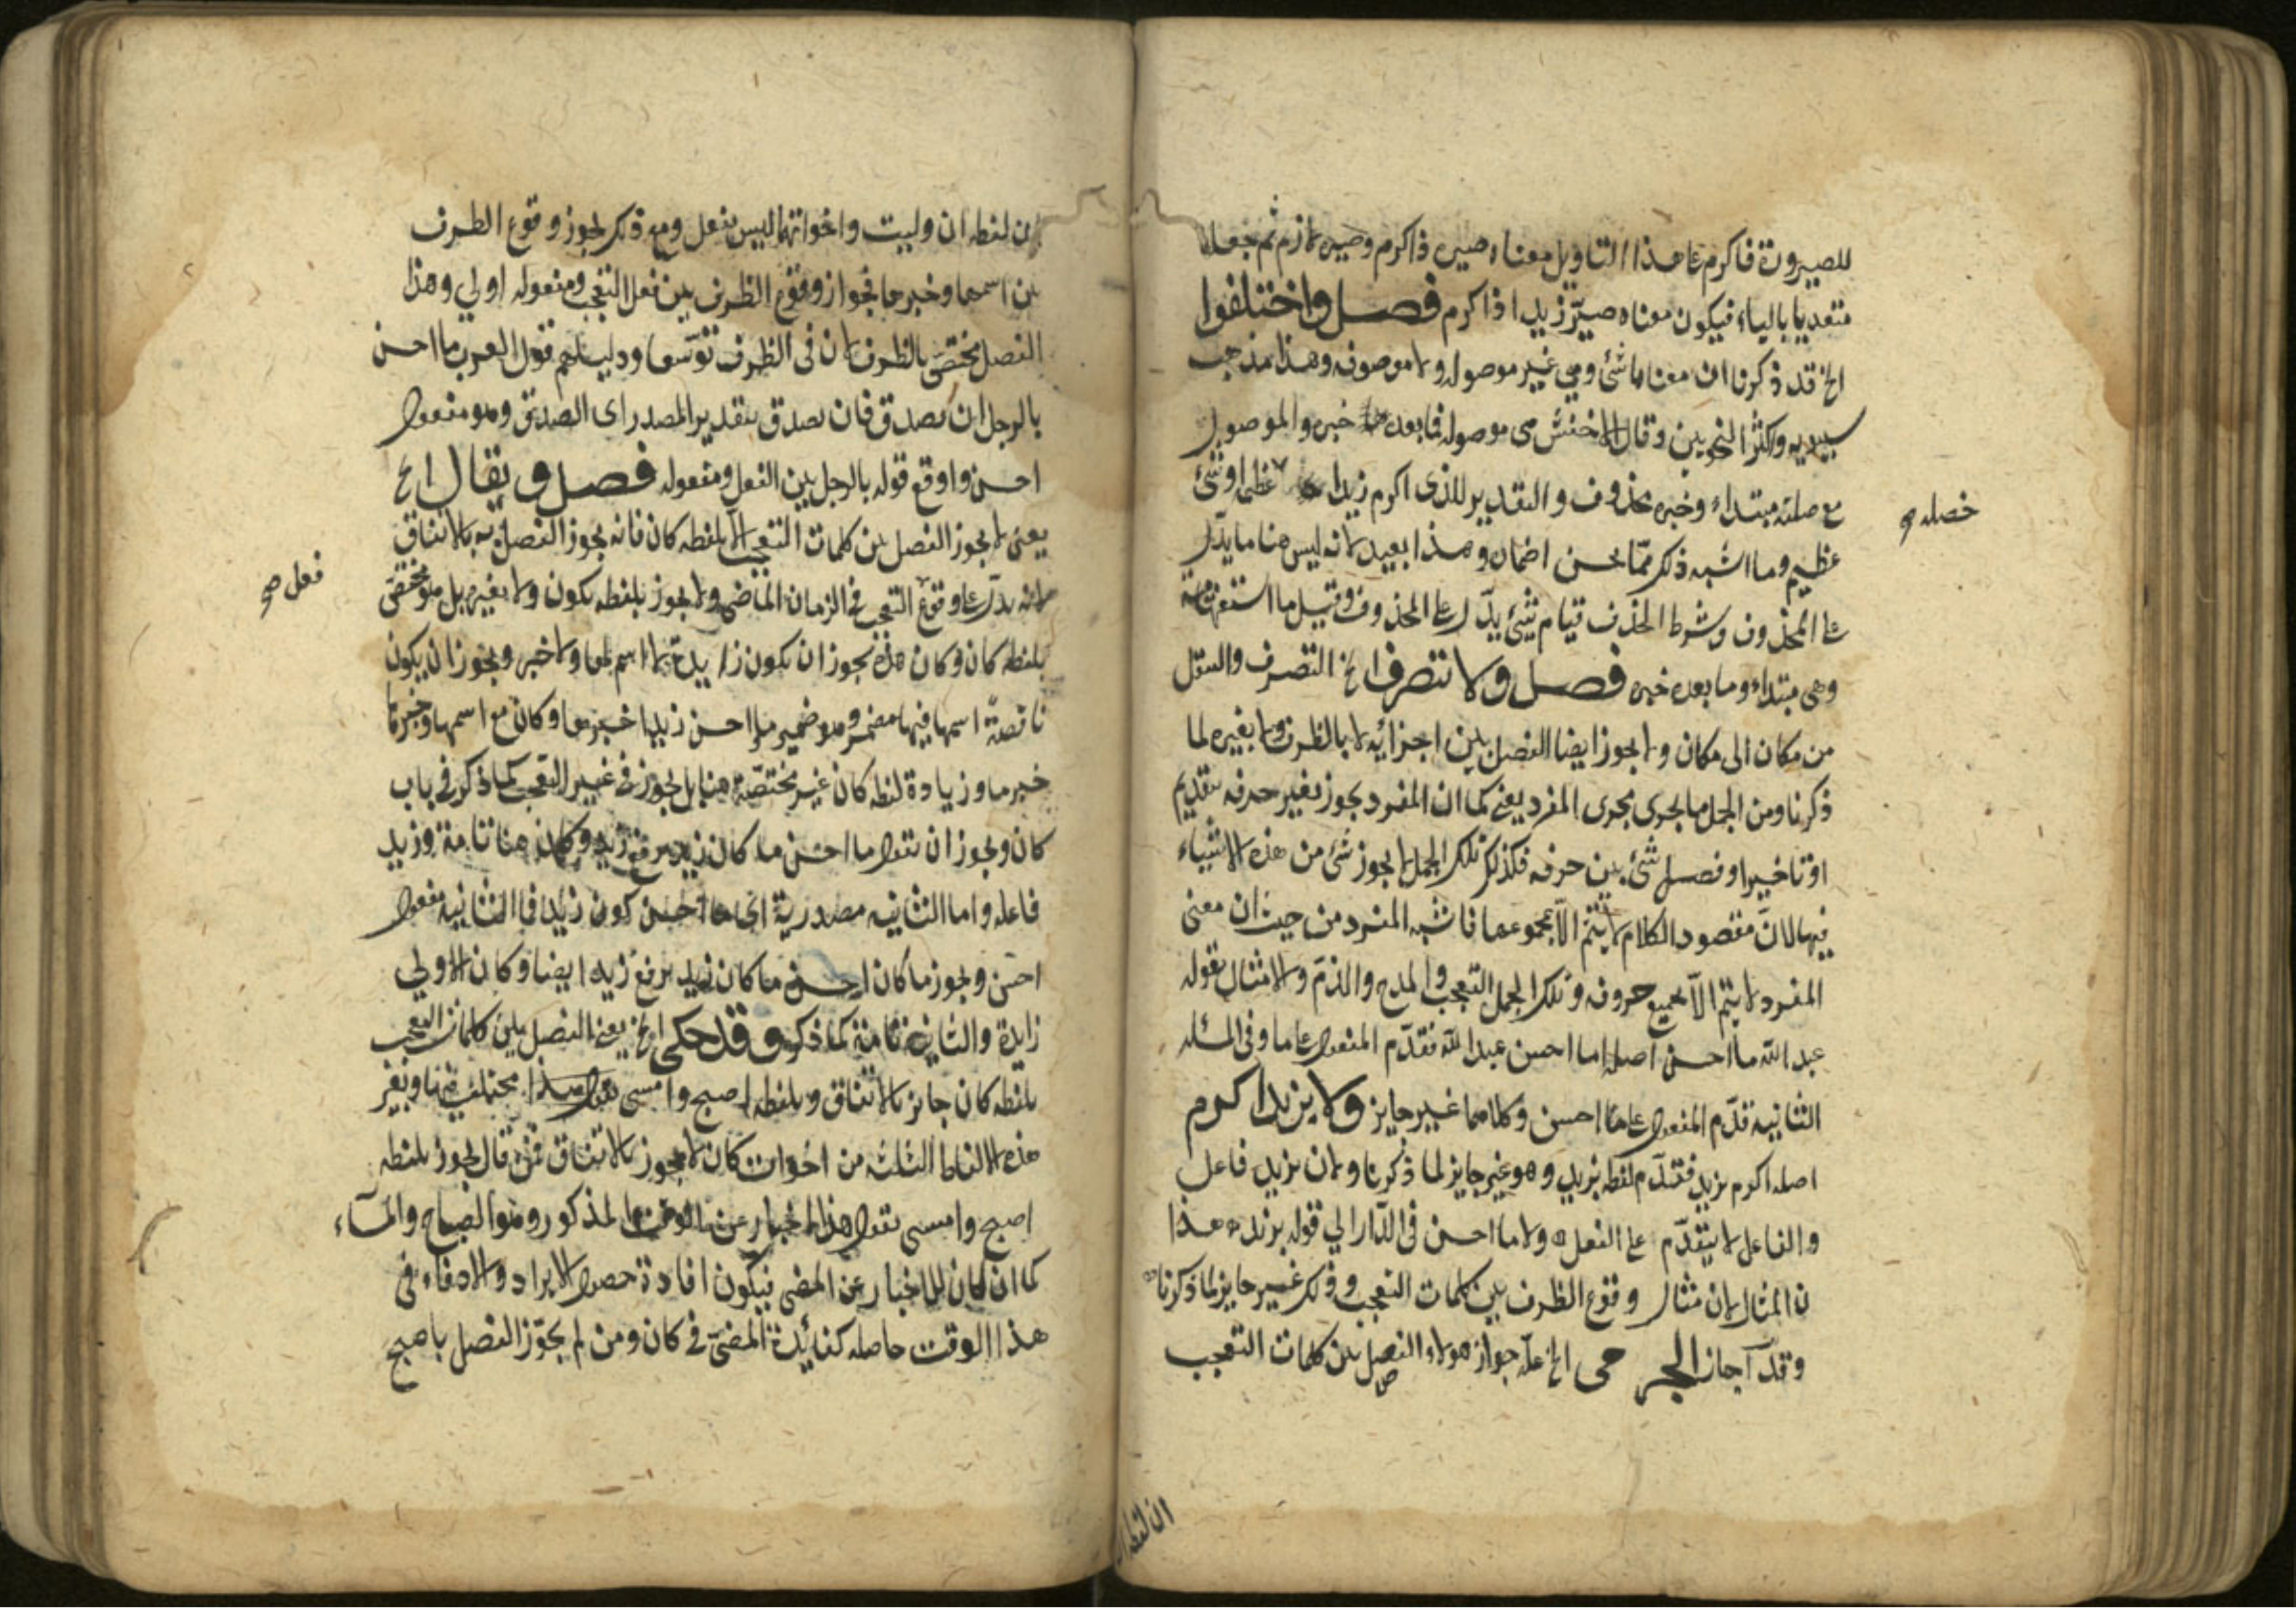 للصيرورة فاكرم على هذا التاويل معناه صير ذا كرم وصير لازم ثم جعل
متعديا بالباء فيكون معناه صيّر زيدا ذا كرم فصل واختلفوا
الخ قد ذكرنا ان معناها شئ وهي غير موصوله ولا موصوفه وهذا مذهب
سيبويه واكثر النحويين وقال الاخفش هى موصوله فما بعدها خبره والموصول
مع صلته مبتداء وخبره محذوف والتقدير للذى اكرم زيدا عظيم او شئ
خصله صح
عظيم وما اشبه ذلك ممّا يحسن اضماره وهذا بعيد لانه ليس هنا ما يدّل
على المحذوف وشرط الحذف قيام شئ يدّل على المحذوف وقيل ما استفهامية
وهى مبتداء وما بعده خبره فصل ولا تتصرف الخ التصرف والتنقل
من مكان الى مكان ولا يجوز ايضا الفصل بين اجزائيه لا بالظرف ولا بغيره لما
ذكرنا ومن الجمل ما يجرى مجرى المفرد يعنى كما ان المفرد لا يجوز تغير حرفه بتقديم
او تاخير او فصل شئ بين حرفه فكذلك تلك الجمل لا يجوز شئ من هذه الاشياء
فيها لانّ مقصود الكلام لا يتم الّا بمجموعها فاشبه المفرد من حيث ان معنى
المفرد لا يتم الّا بجميع حروفه وتلك الجمل التعجب والمدح والذمّ والامثال بقوله
عبد الله ما احسن اصله ما احسن عبد الله فقدّم المفعول على ما وفى المسئله
الثانيه قدّم المفعول على ما احسن وكلاهما غير جايز ولا يزيد اكرم
اصله اكرم بزيد فقدّم لفظه بزيد وهو غير جايز لما ذكرنا ولان بزيد فاعل
والفاعل لا يتقدّم على الفعل ولا ما احسن فى الدّار الي قوله بزيد هذا
ن المثالان مثال وقوع الظرف بين كلمات التعجب وذلك غير جايز لما ذكرنا
وقد اجاز الجر مى الخ علّه جواز هولاء الفصل بين كلمات التعجب
ان لفظه ا
ان لفظه ان وليت واخواتهما ليس بفعل ومع ذلك يجوز وقوع الظرف
بين اسمها وخبرها فجواز وقوع الظرف بين فعل التعجب ومفعوله اولي وهذا
الفصل مختصّ بالظرف لان فى الظرف توسّعا ودليلهم قول العرب ما احسن
بالرجل ان يصدق فان يصدق بتقدير المصدر اى الصدق وهو مفعول
احسن واوقع قوله بالرجل بين الفعل ومفعوله فصل ويقال الخ
يعنى لا يجوز الفصل بين كلمات التعجب الّا بلفظه كان فانه يجوز الفصل به بالاتفاق
فعل صح
لانه يدّل على وقوع التعجب فى الزمان الماضى ولا يجوز بلفظه يكون ولا بغيره بل هو مختصّ
بلفظه كان وكان هذه يجوز ان تكون زايدة لا اسم لها ولا خبر ويجوز ان يكون
ناقصةً اسمها فيها مضمر وهو ضمير ما واحسن زيدا خبرها وكان مع اسمها وخبرها
خبر ما وزيادة لفظه كان غير مختصّة هنا بل يجوز فى غير التعجب كما ذكر فى باب
كان ويجوز ان تقول ما احسن ما كان زيد برفع زيد وكان هنا تامة وزيد
فاعله واما الثانيه مصدرية اى ما احسن كون زيد فما الثانيه مفعول
احسن ويجوز ما كان احسن ما كان زيد برفع زيد ايضا وكان الاولي
زايدة والثانية تامة كما ذكر وقد حكى الخ يعنى الفصل بين كلمات التعجب
بلفظه كان جايز بالاتفاق وبلفظه اصبح وامسى مختلف فيها وبغير
هذه الالفاظ الثلثه من اخوات كان لا يجوز بالاتفاق فمن قال يجوز بلفظه
اصبح وامسى يقول هذا اخبار عن الوقت المذكور وهو الصباح والمسآء
كما ان كان للاخبار عن المضى فيكون افادة حصول الايراد والادفاء فى
هذا الوقت حاصله كفائدة المضىّ فى كان ومن لم يجوّز الفصل باصبح